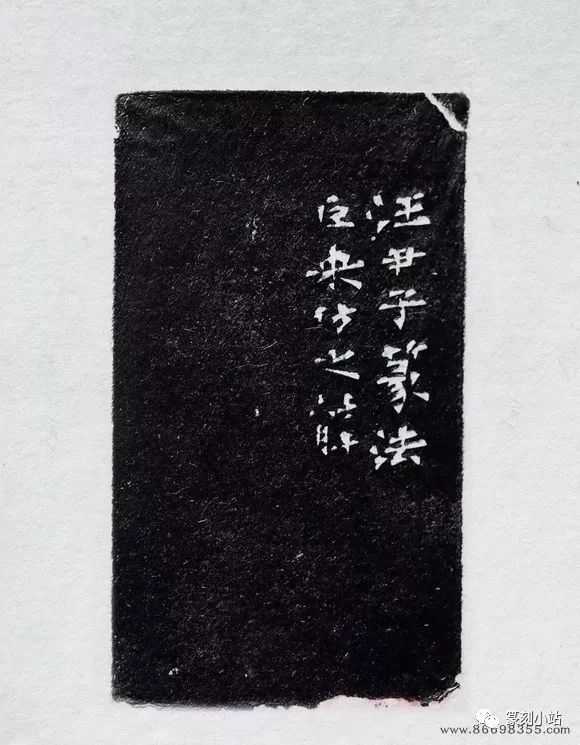 汪尹子篆法
臣乘仿之
篆刻小站
www.86698355.com